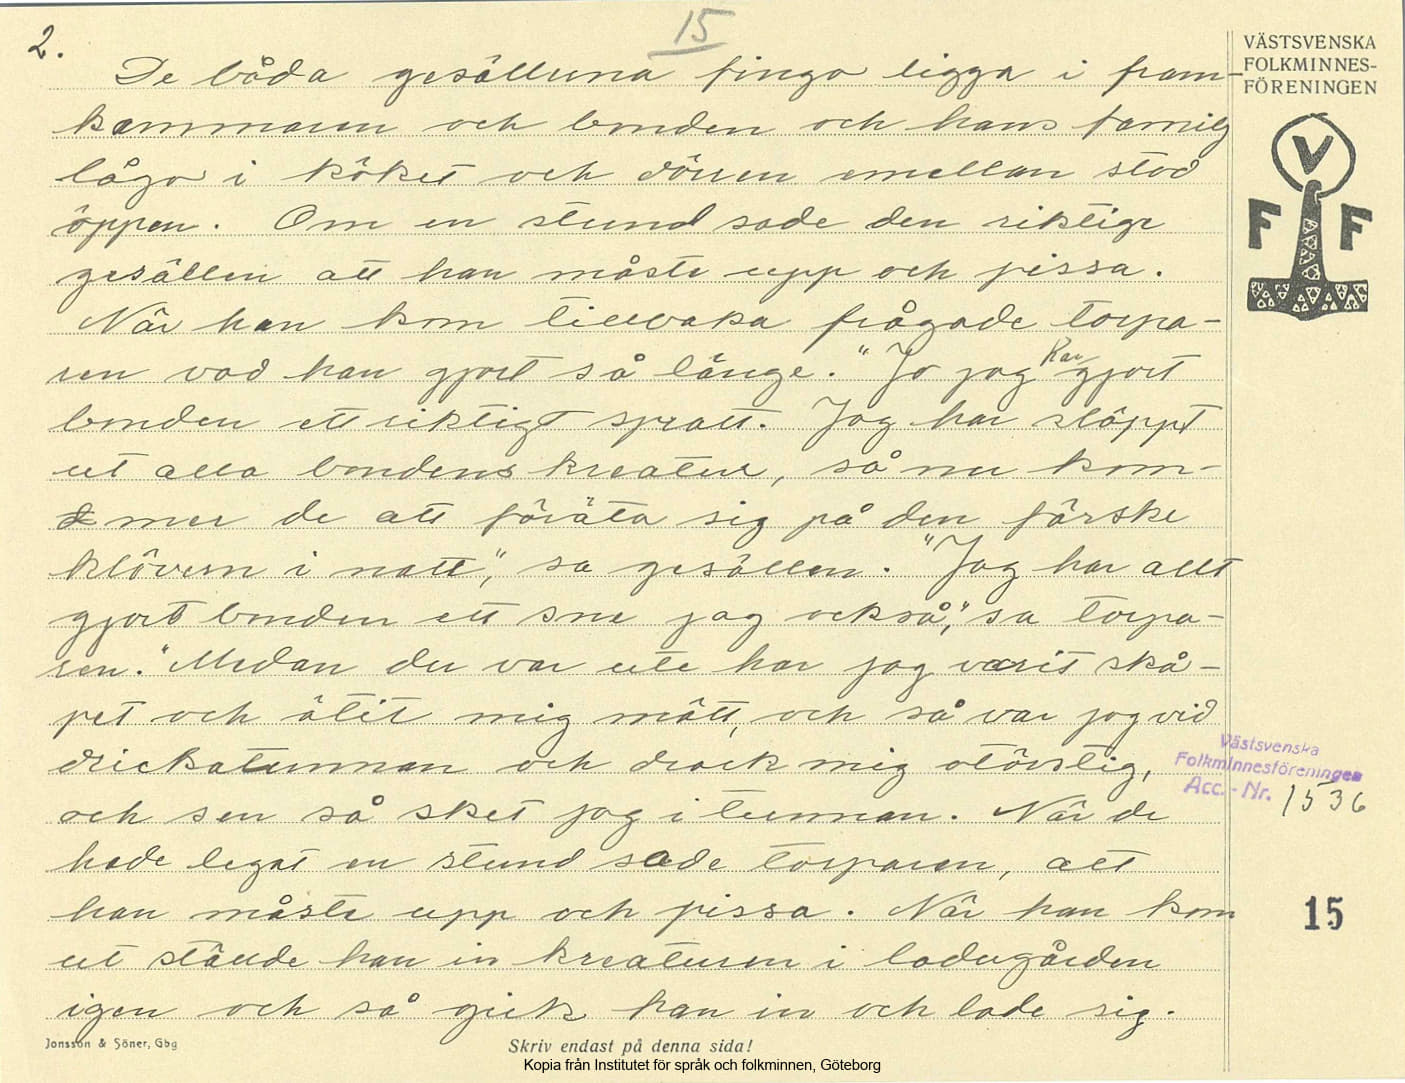 2.
15
De båda gesällerna fingo ligga i fram-
kammaren och bonden och hans familj
lågo i köket och dörren emellan stod
öppen. Om en stund sade den riktige
gesällen att han måste upp och pissa.
När han kom tillbaka frågade torpa-
ren vad han gjort så länge. "Jo jag har gjort
bonden ett riktigt spratt. Jag har släppt
ut alla bondens kreatur, så nu kom-
mer de att föräta sig på den färske
klövern i natt", sa gesällen. "Jag har allt
gjort bonden ett sne jag också," sa torpa-
ren. "Medan du var ute har jag varit skå-
pet och ätit mig mätt, och så var jag vid
drickatunnan och drack mig otörstig,
och sen så sket jag i tunnan. När de
hade legat en stund sade torparen, att
han måste upp och pissa. När han kom
ut ställde han in kreaturen i ladugården
igen och så gick han in och lade sig.
VÄSTSVENSKA
FOLKMINNES-
FÖRENINGEN
V
F F
Västsvenska
Folkminnesföreningen
Acc. - Nr. 1536
15
Jonsson & Söner, Gbg
Skriv endast på denna sida!
Kopia från Institutet för språk och folkminnen, Göteborg